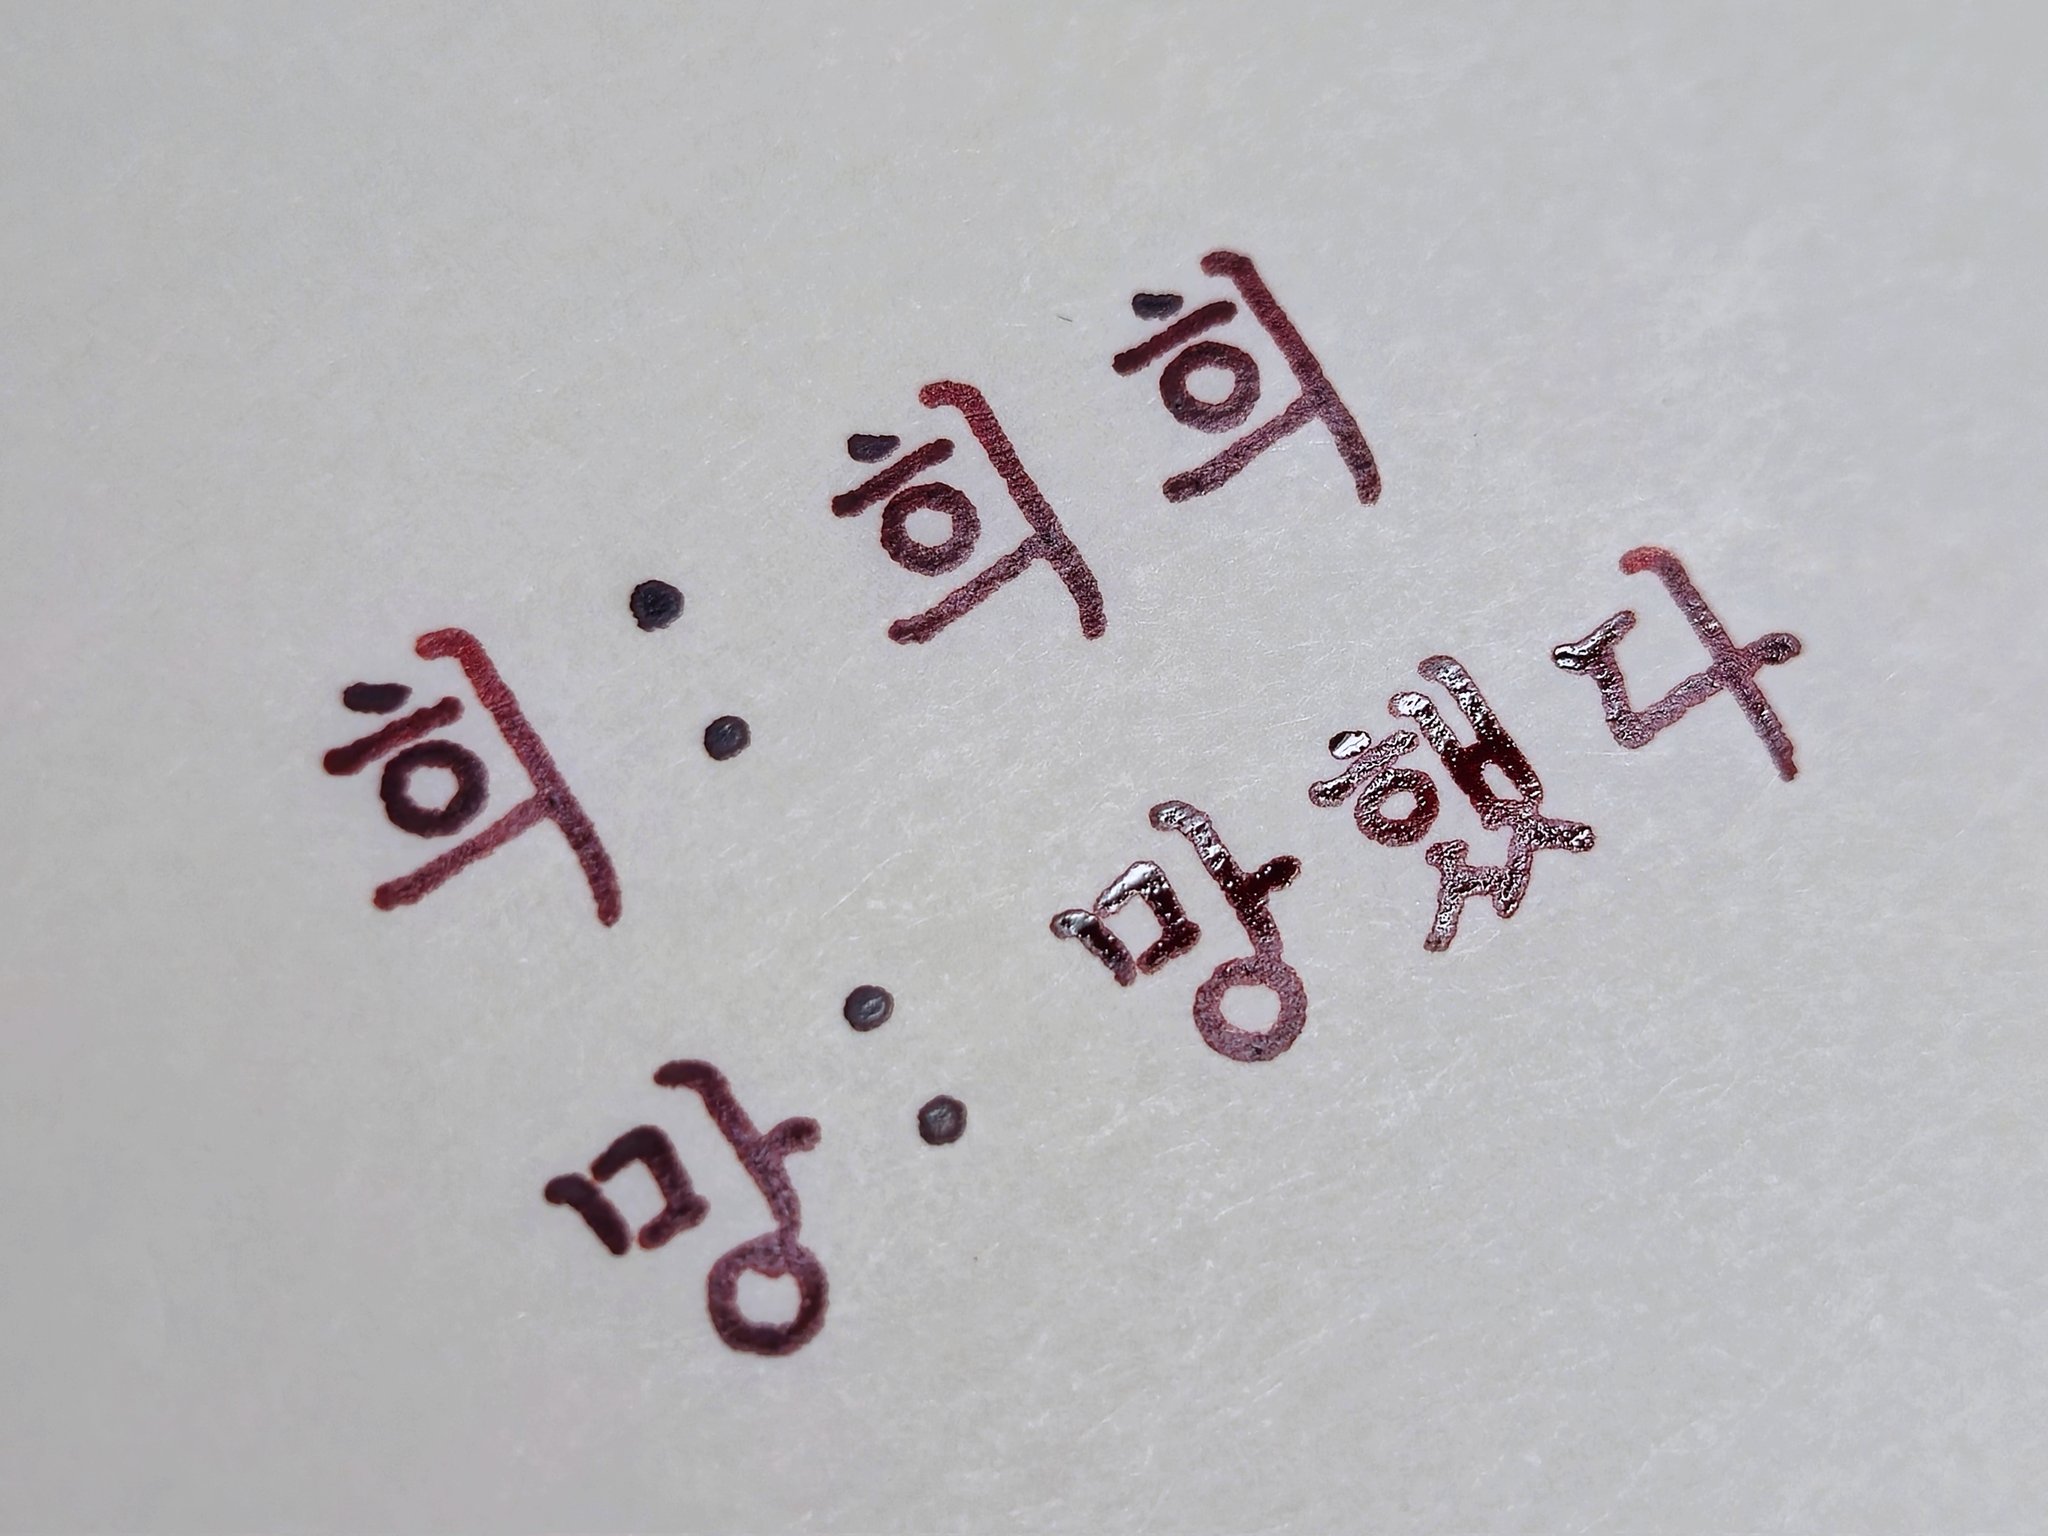 희 : 희희
망 : 망했다